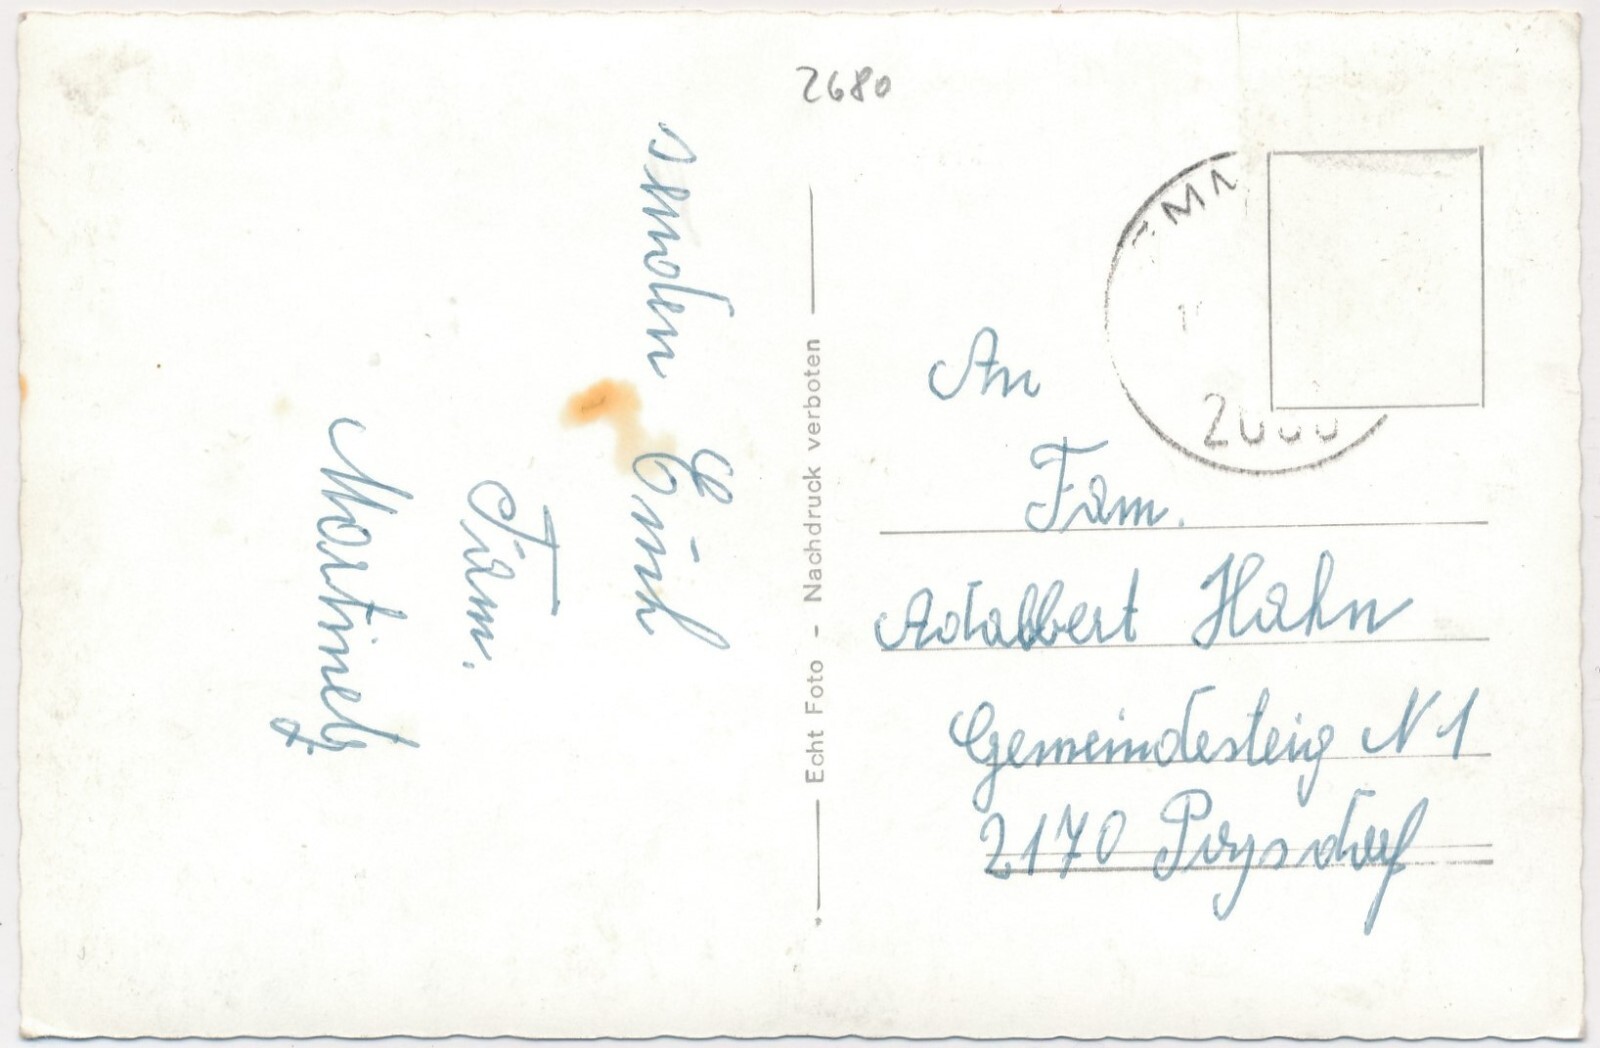 2680
senden
Euch
Fam.
Martinetz
Echt Foto - Nachdruck verboten
An
Fam.
Adalbert Hahn
Gemeindesteig N 1
2170 Poysdorf